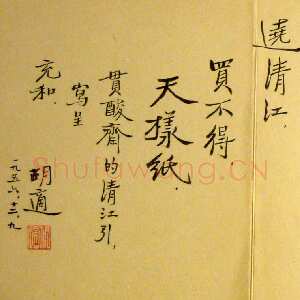 遶清江，
買不得
天樣紙．
貫酸齋的清江引，
寫呈
充和．
胡適
一九五六，十二，九
Shufawang.CN